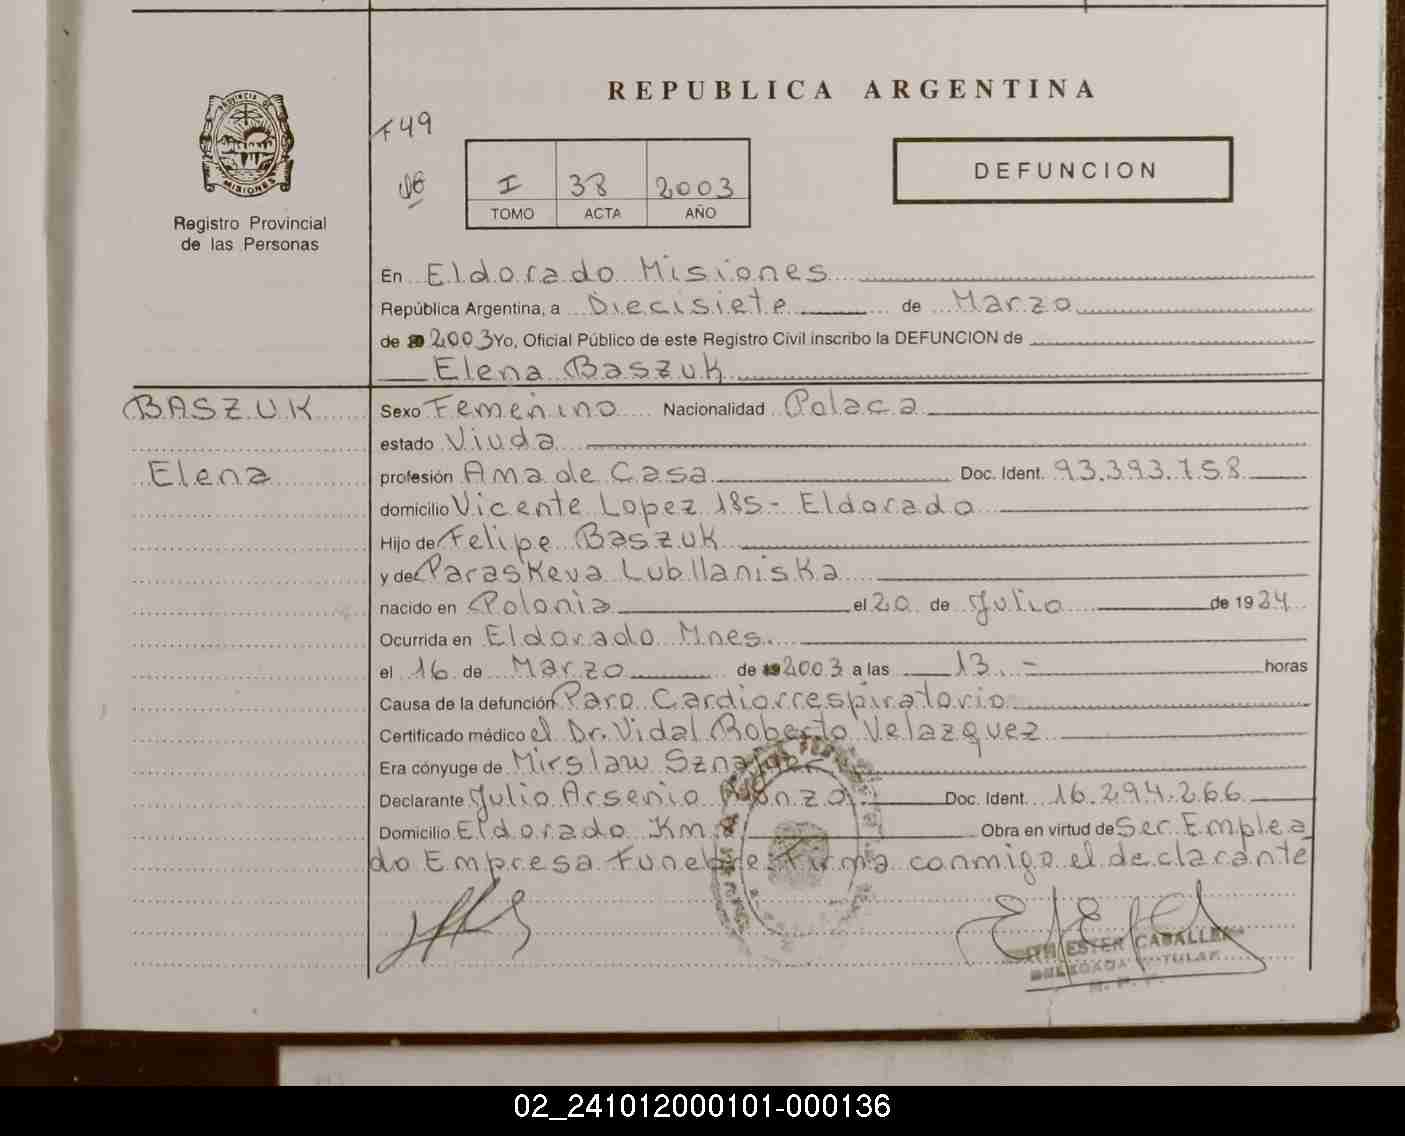 REPUBLICA ARGENTINA
F49
I 38 2003
TOMO ACTA AÑO
DEFUNCION
PROVINCIA DE
MISIONES
Registro Provincial
de las Personas
En Eldorado Misiones
República Argentina, a Diecisiete de Marzo
de 2003 Yo, Oficial Público de este Registro Civil inscribo la DEFUNCION de
Elena Baszuk
BASZUK
Elena
Sexo Femenino Nacionalidad Polaca
estado Viuda
profesión Ama de Casa Doc. Ident. 93.393.758
domicilio Vicente Lopez 185 - Eldorado
Hijo de Felipe Baszuk
y de Paraskeva Lubllaniska
nacido en Polonia el 20 de Julio de 1924
Ocurrida en Eldorado Mnes.
el 16 de Marzo de 2003 a las 13.- horas
Causa de la defunción Paro Cardiorrespiratorio
Certificado médico el Dr. Vidal Roberto Velazquez
Era cónyuge de Mirslaw
Declarante Julio Arsenio Doc. Ident. 16.294.266
Domicilio Eldorado Km Obra en virtud de Ser Emplea
do Empresa Funebre. Firma conmigo el declarante
ESTER CABALLER
TITULAR
02_241012000101-000136